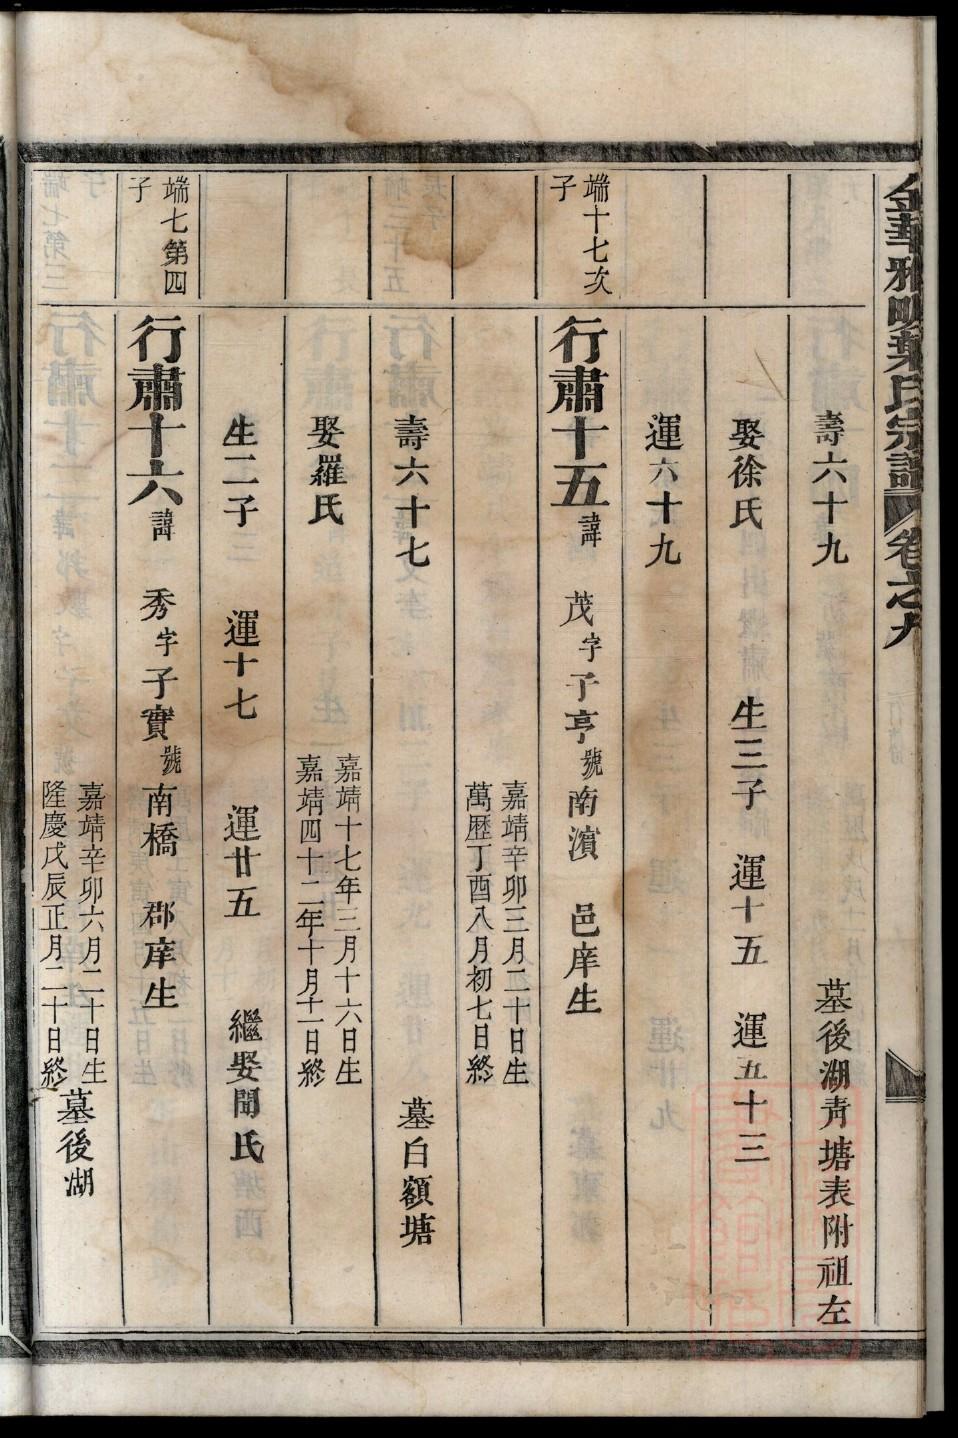 金華雅畈葉氏宗譜 卷之九
壽六十九 墓後湖青塘表附祖左
娶徐氏 生三子 運十五 運五十三
運六十九
端十七次子
行肅十五 諱茂 字子亨 號南濱 邑庠生
嘉靖辛卯三月二十日生
萬歷丁酉八月初七日終
壽六十七 墓白額塘
娶羅氏 嘉靖十七年三月十六日生
嘉靖四十二年十月十一日終
生二子 運十七 運廿五 繼娶聞氏
端七第四子
行肅十六 諱秀 字子實 號南橋 郡庠生
嘉靖辛卯六月二十日生
隆慶戊辰正月二十日終 墓後湖